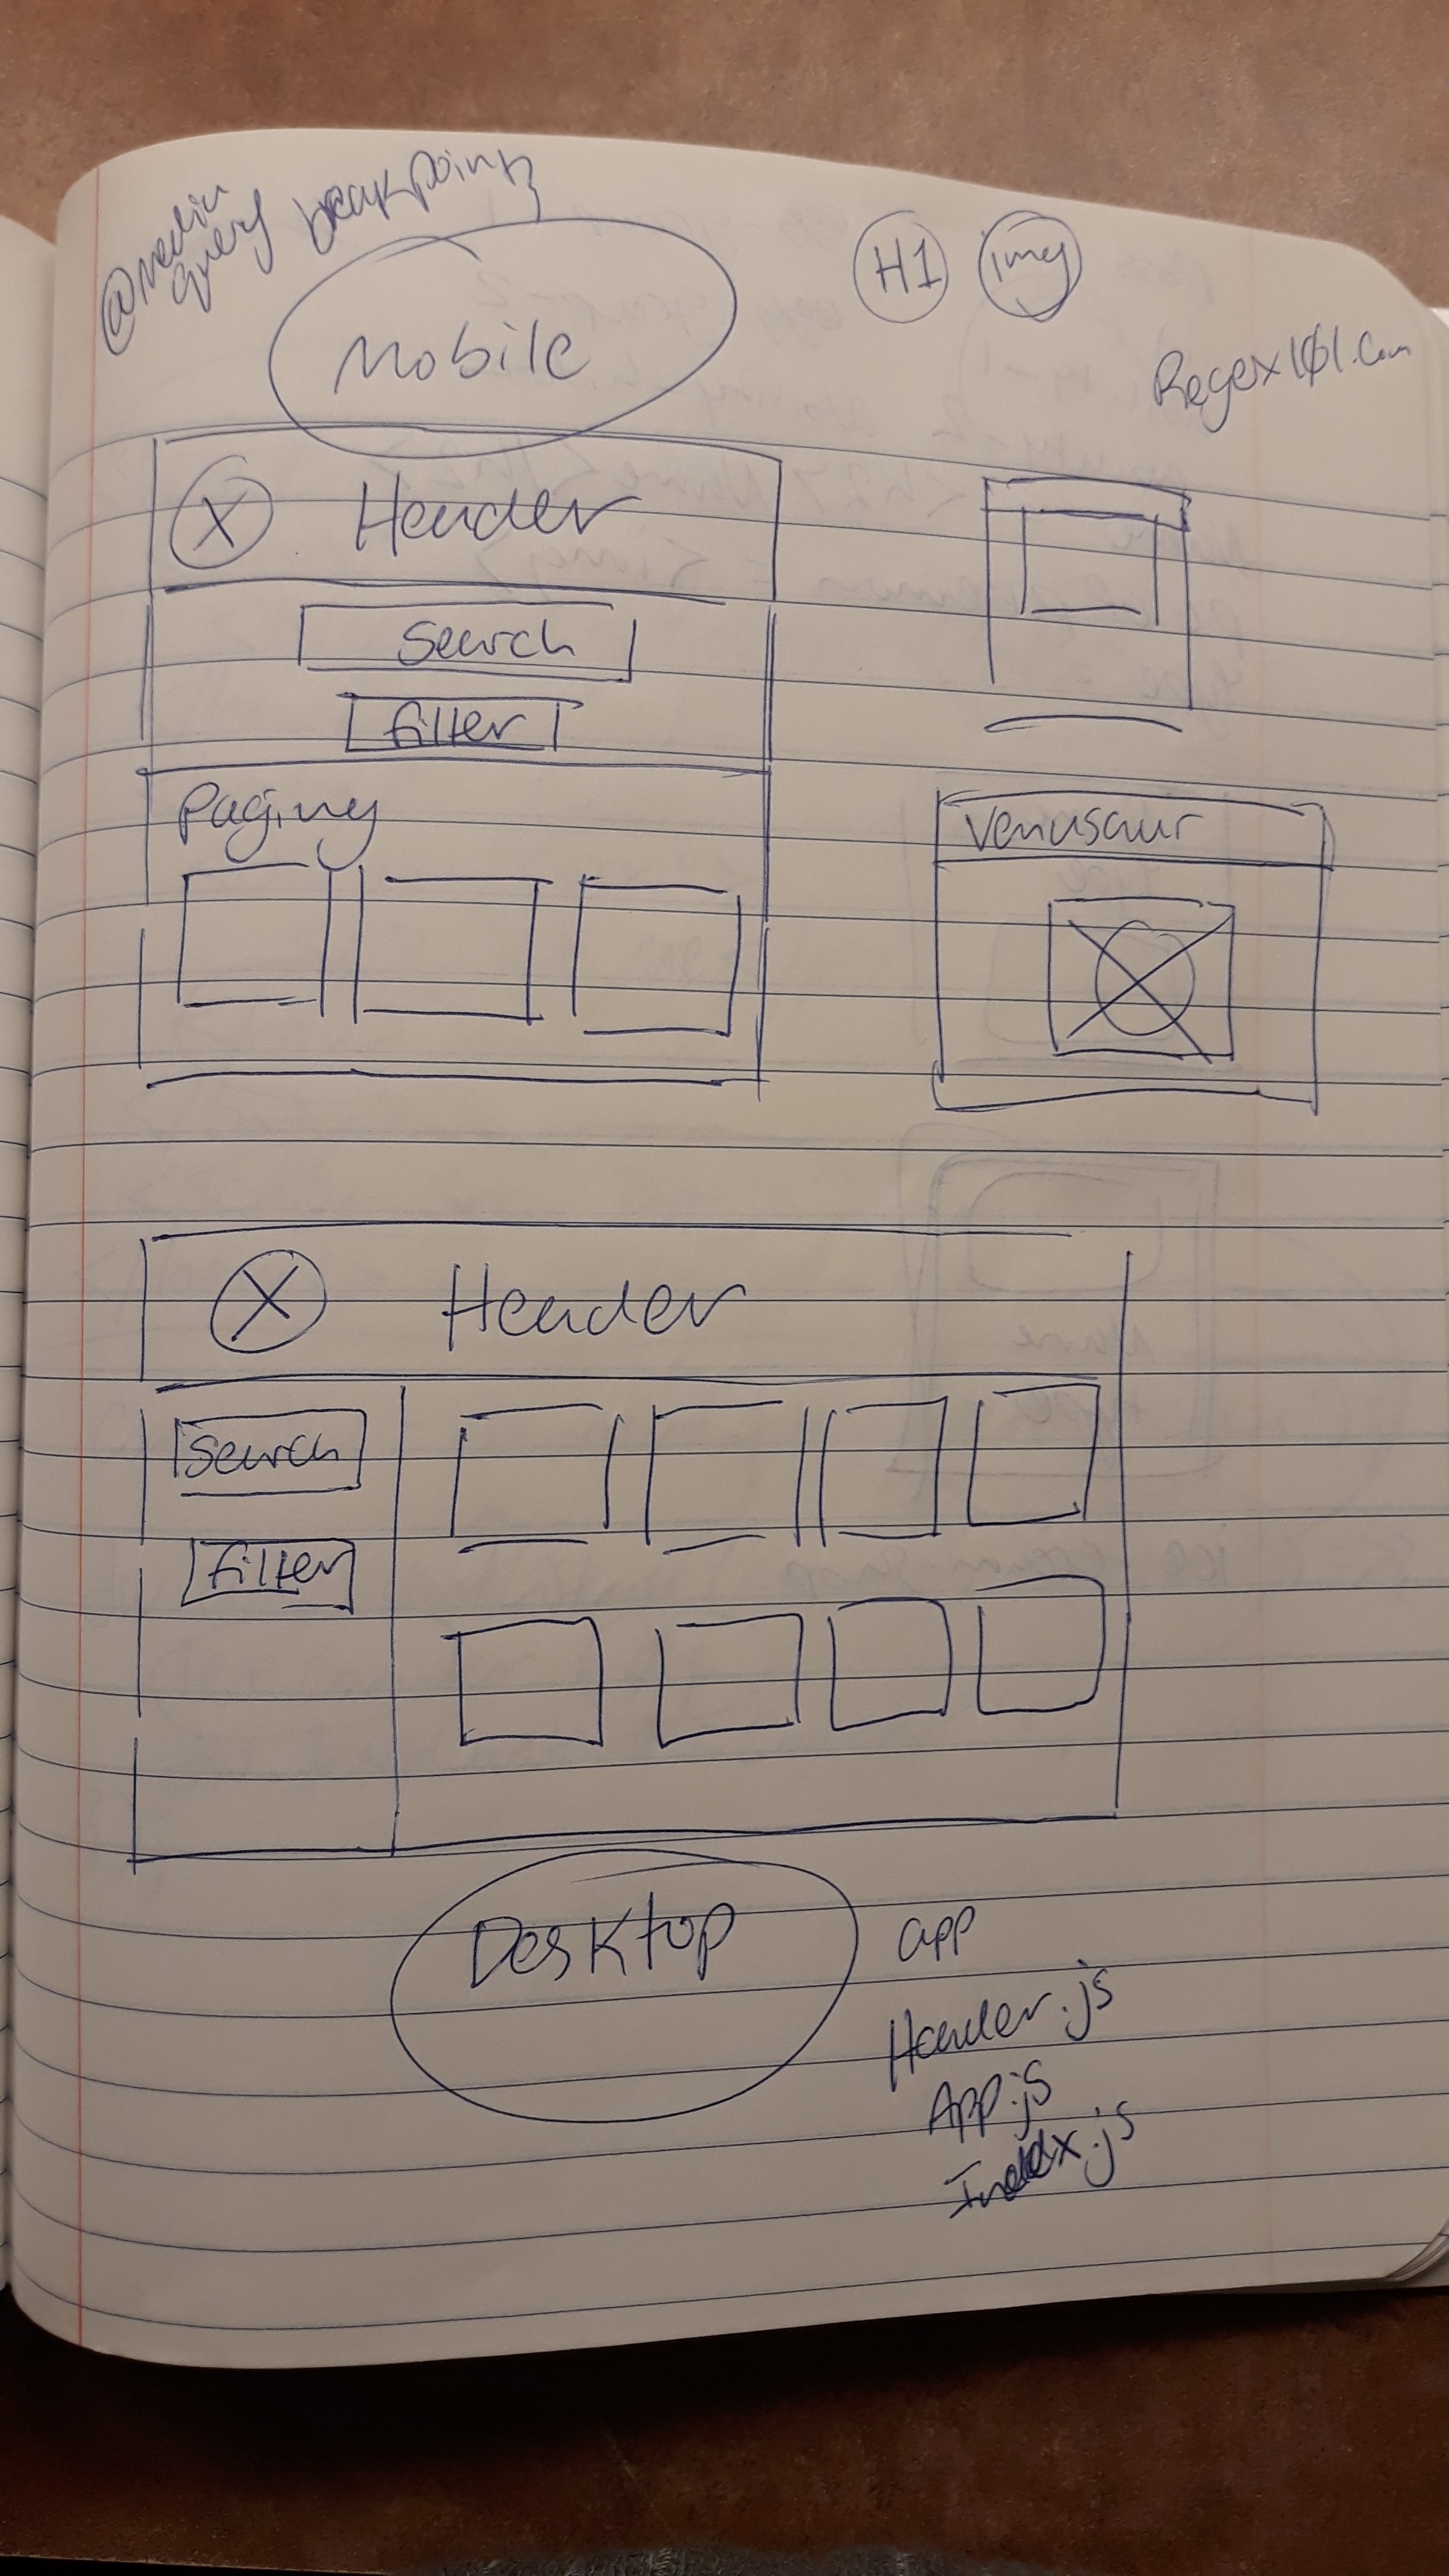 @media
query breakpoints
Mobile
H1 img
Regex101.com
X Header
Search
Filter
Paging
Venusaur
X Header
Search
Filter
Desktop
app
Header.js
App.js
Index.js